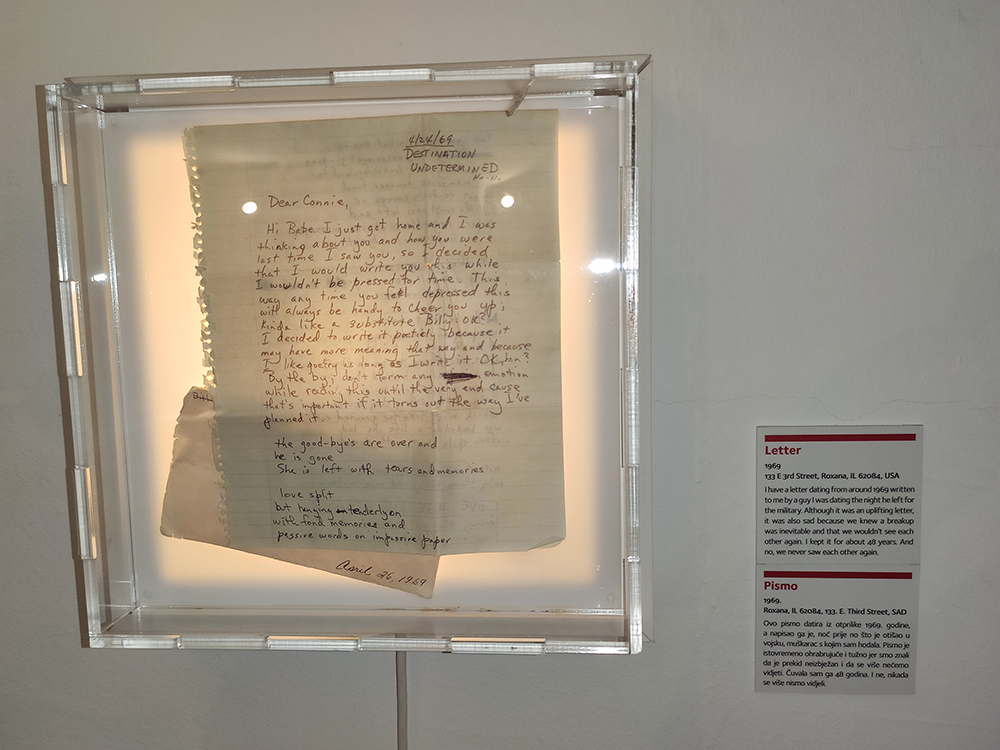 4/24/69
DESTINATION
UNDETERMINED
Ha-Ha
Dear Connie,
Hi Babe. I just got home and I was
thinking about you and how you were
last time I saw you, so I decided
that I would write you this while
I wouldn't be pressed for time. This
way any time you feel depressed this
will always be handy to cheer you up,
kinda like a substitute Billy. OK?
I decided to write it because it
may have more meaning that way and because
I like poetry as long as I write it. OK, hon?
By the by, don't form any emotion
while reading this until the very end cause
that's important if it turns out the way I've
planned it.
the good-bye's are over and
he is gone
She is left with tears and memories
love split
but hanging tenderly on
with fond memories and
words on impassive paper
April 26, 1969
Letter
1969
133 E 3rd Street, Roxana, IL 62084, USA
I have a letter dating from around 1969 written
to me by a guy I was dating the night he left for
the military. Although it was an uplifting letter,
it was also sad because we knew a breakup
was inevitable and that we wouldn't see each
other again. I kept it for about 48 years. And
no, we never saw each other again.
Pismo
1969.
Roxana, IL 62084, 133. E. Third Street, SAD
Ovo pismo datira iz otprilike 1969. godine,
a napisao ga je, noć prije no što je otišao u
vojsku, muškarac s kojim sam hodala. Pismo je
istovremeno ohrabrujuće i tužno jer smo znali
da je prekid neizbježan i da se više nećemo
vidjeti. Čuvala sam ga 48 godina. I ne, nikada
se više nismo vidjeli.